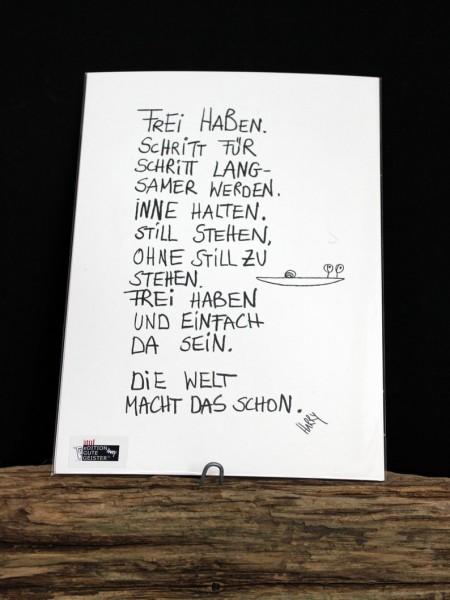 FREI HABEN.
SCHRITT FÜR
SCHRITT LANG-
SAMER WERDEN.
INNE HALTEN.
STILL STEHEN,
OHNE STILL ZU
STEHEN.
FREI HABEN
UND EINFACH
DA SEIN.
DIE WELT
MACHT DAS SCHON.
Harry
EDITION
GUTE
GEISTER